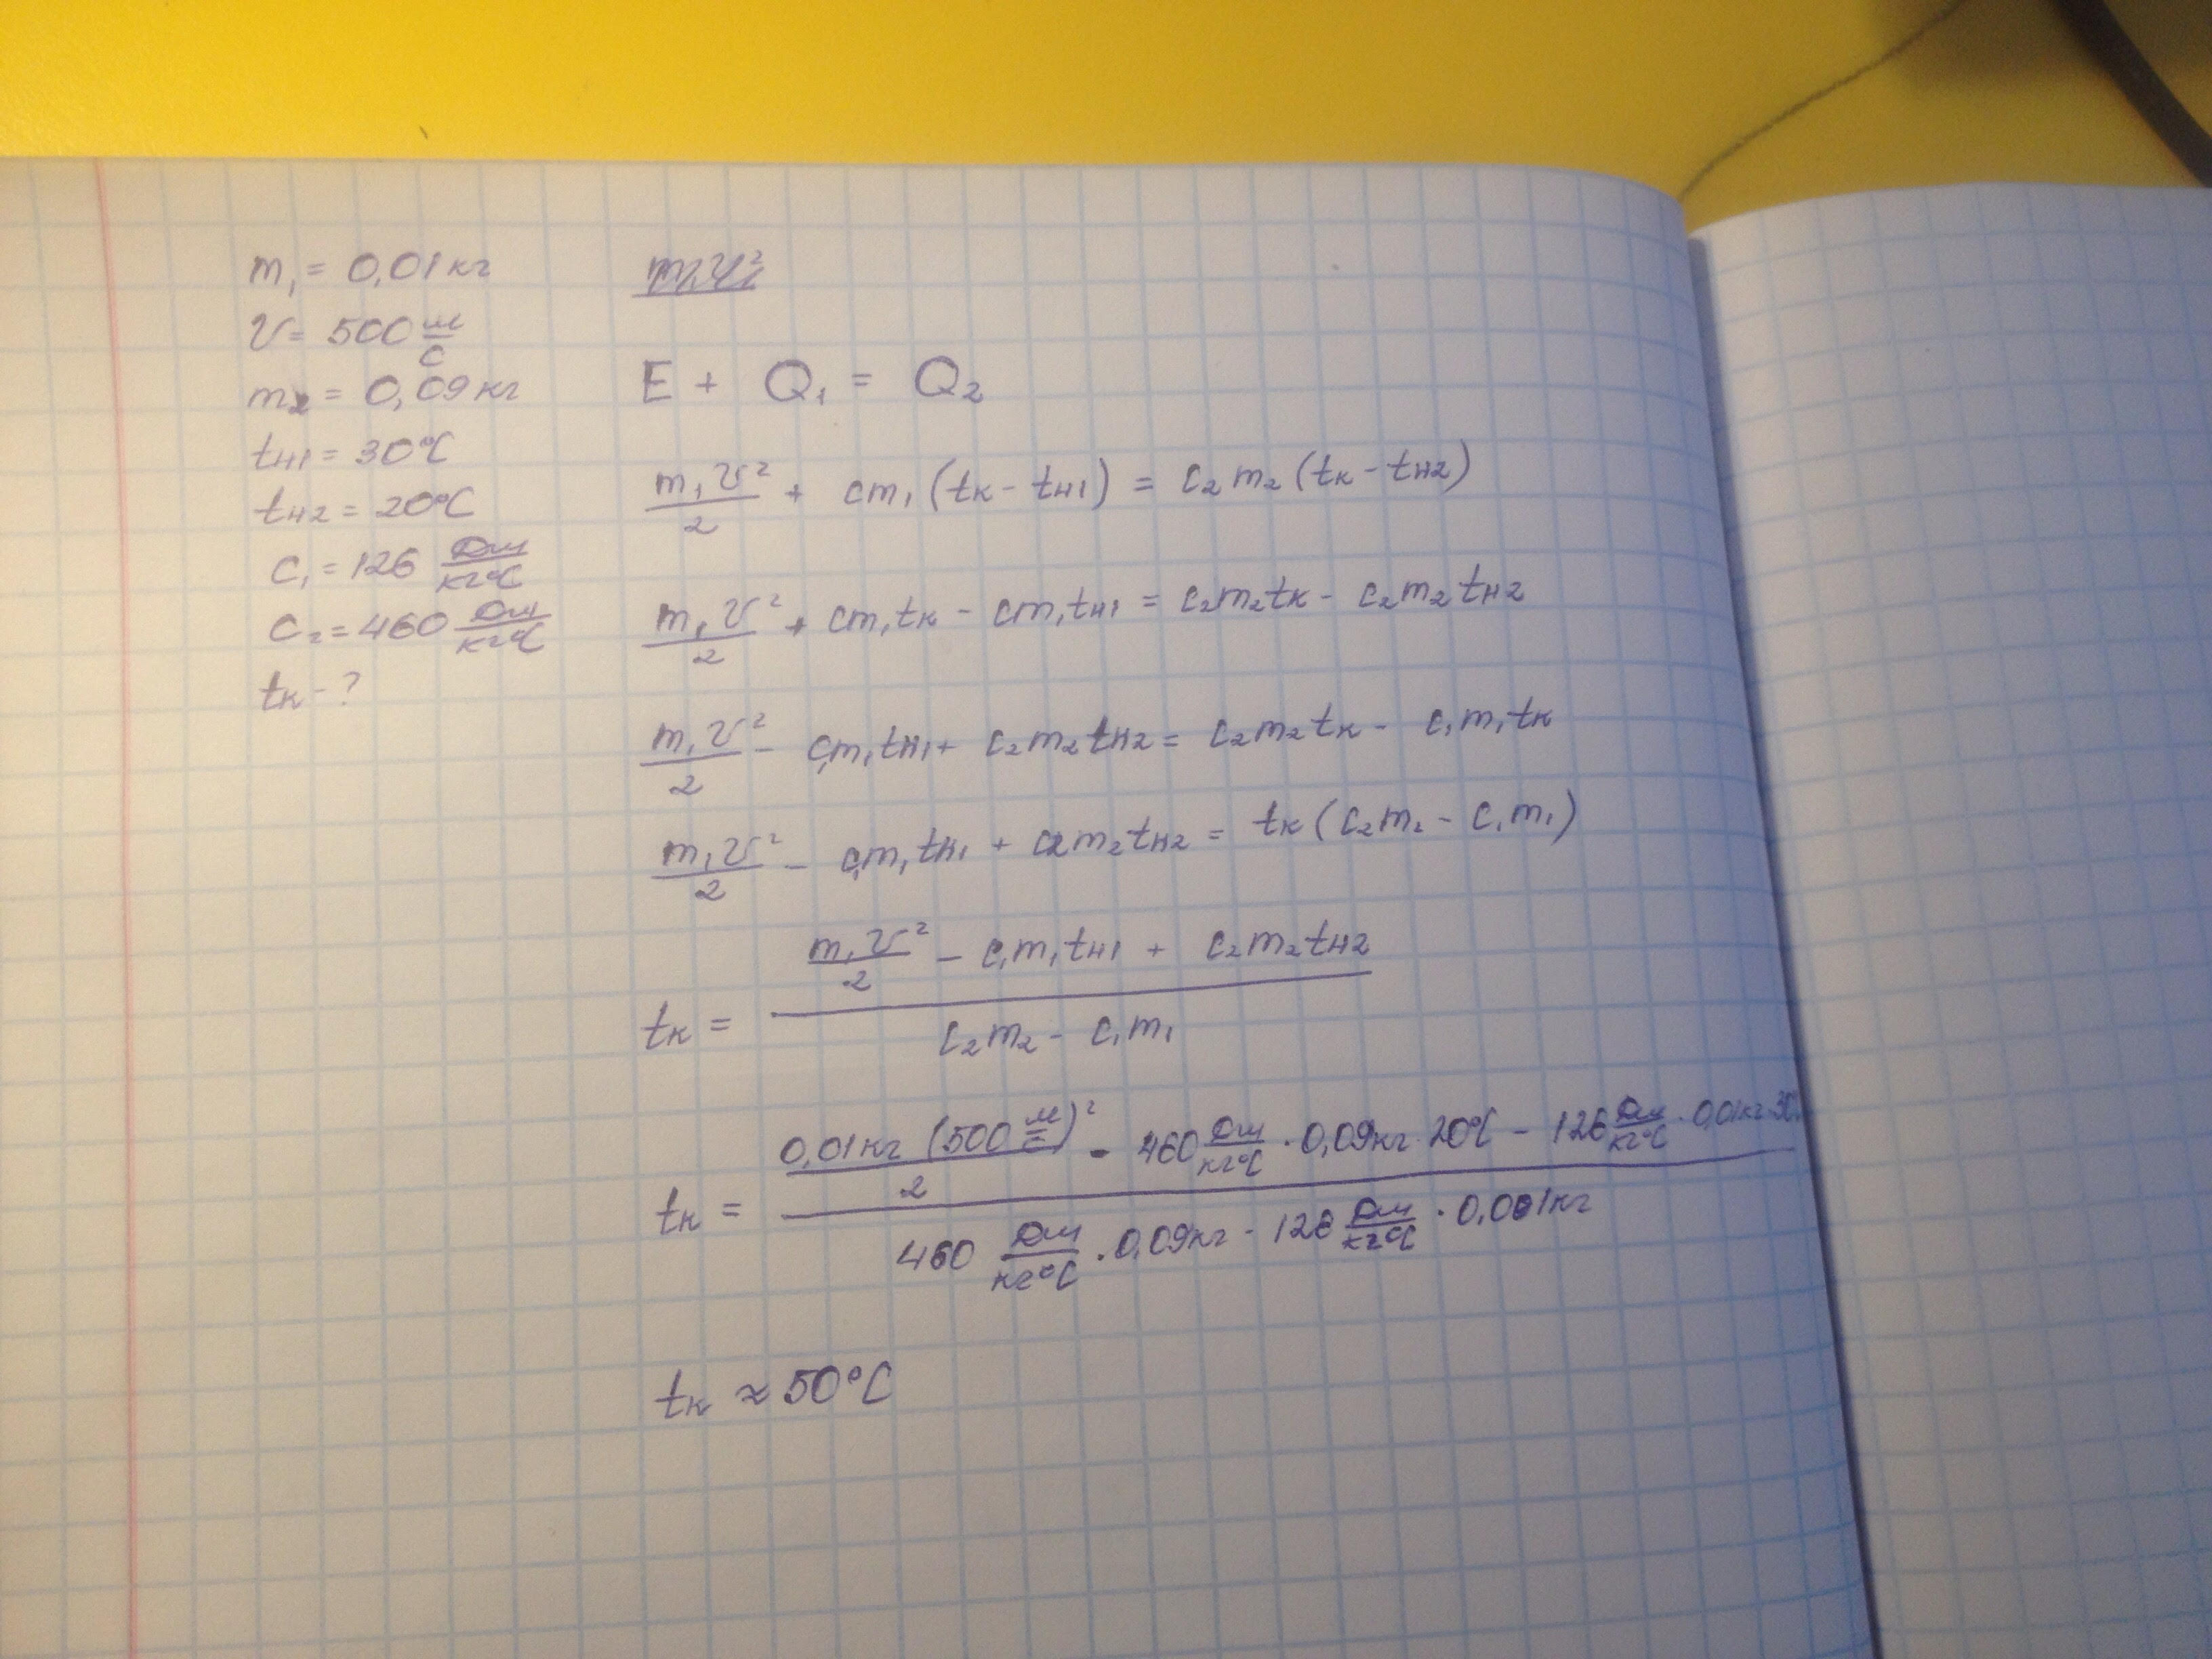 m₁ = 0,01 кг
v = 500 м/с
m₂ = 0,09 кг
tн1 = 30°C
tн2 = 20°C
c₁ = 126 Дж/кг°C
c₂ = 460 Дж/кг°C
tк - ?
E + Q₁ = Q₂
m₁v²/2 + cm₁(tк - tн1) = c₂m₂(tк - tн2)
m₁v²/2 + cm₁tк - cm₁tн1 = c₂m₂tк - c₂m₂tн2
m₁v²/2 - c₁m₁tн1 + c₂m₂tн2 = c₂m₂tк - c₁m₁tк
m₁v²/2 - c₁m₁tн1 + c₂m₂tн2 = tк(c₂m₂ - c₁m₁)
tк = (m₁v²/2 - c₁m₁tн1 + c₂m₂tн2) / (c₂m₂ - c₁m₁)
tк = (0,01кг (500 м/с)²/2 - 460 Дж/кг°C · 0,09кг · 20°C - 126 Дж/кг°C · 0,01кг · 30°C) / (460 Дж/кг°C · 0,09кг - 126 Дж/кг°C · 0,001кг)
tк ≈ 50°C